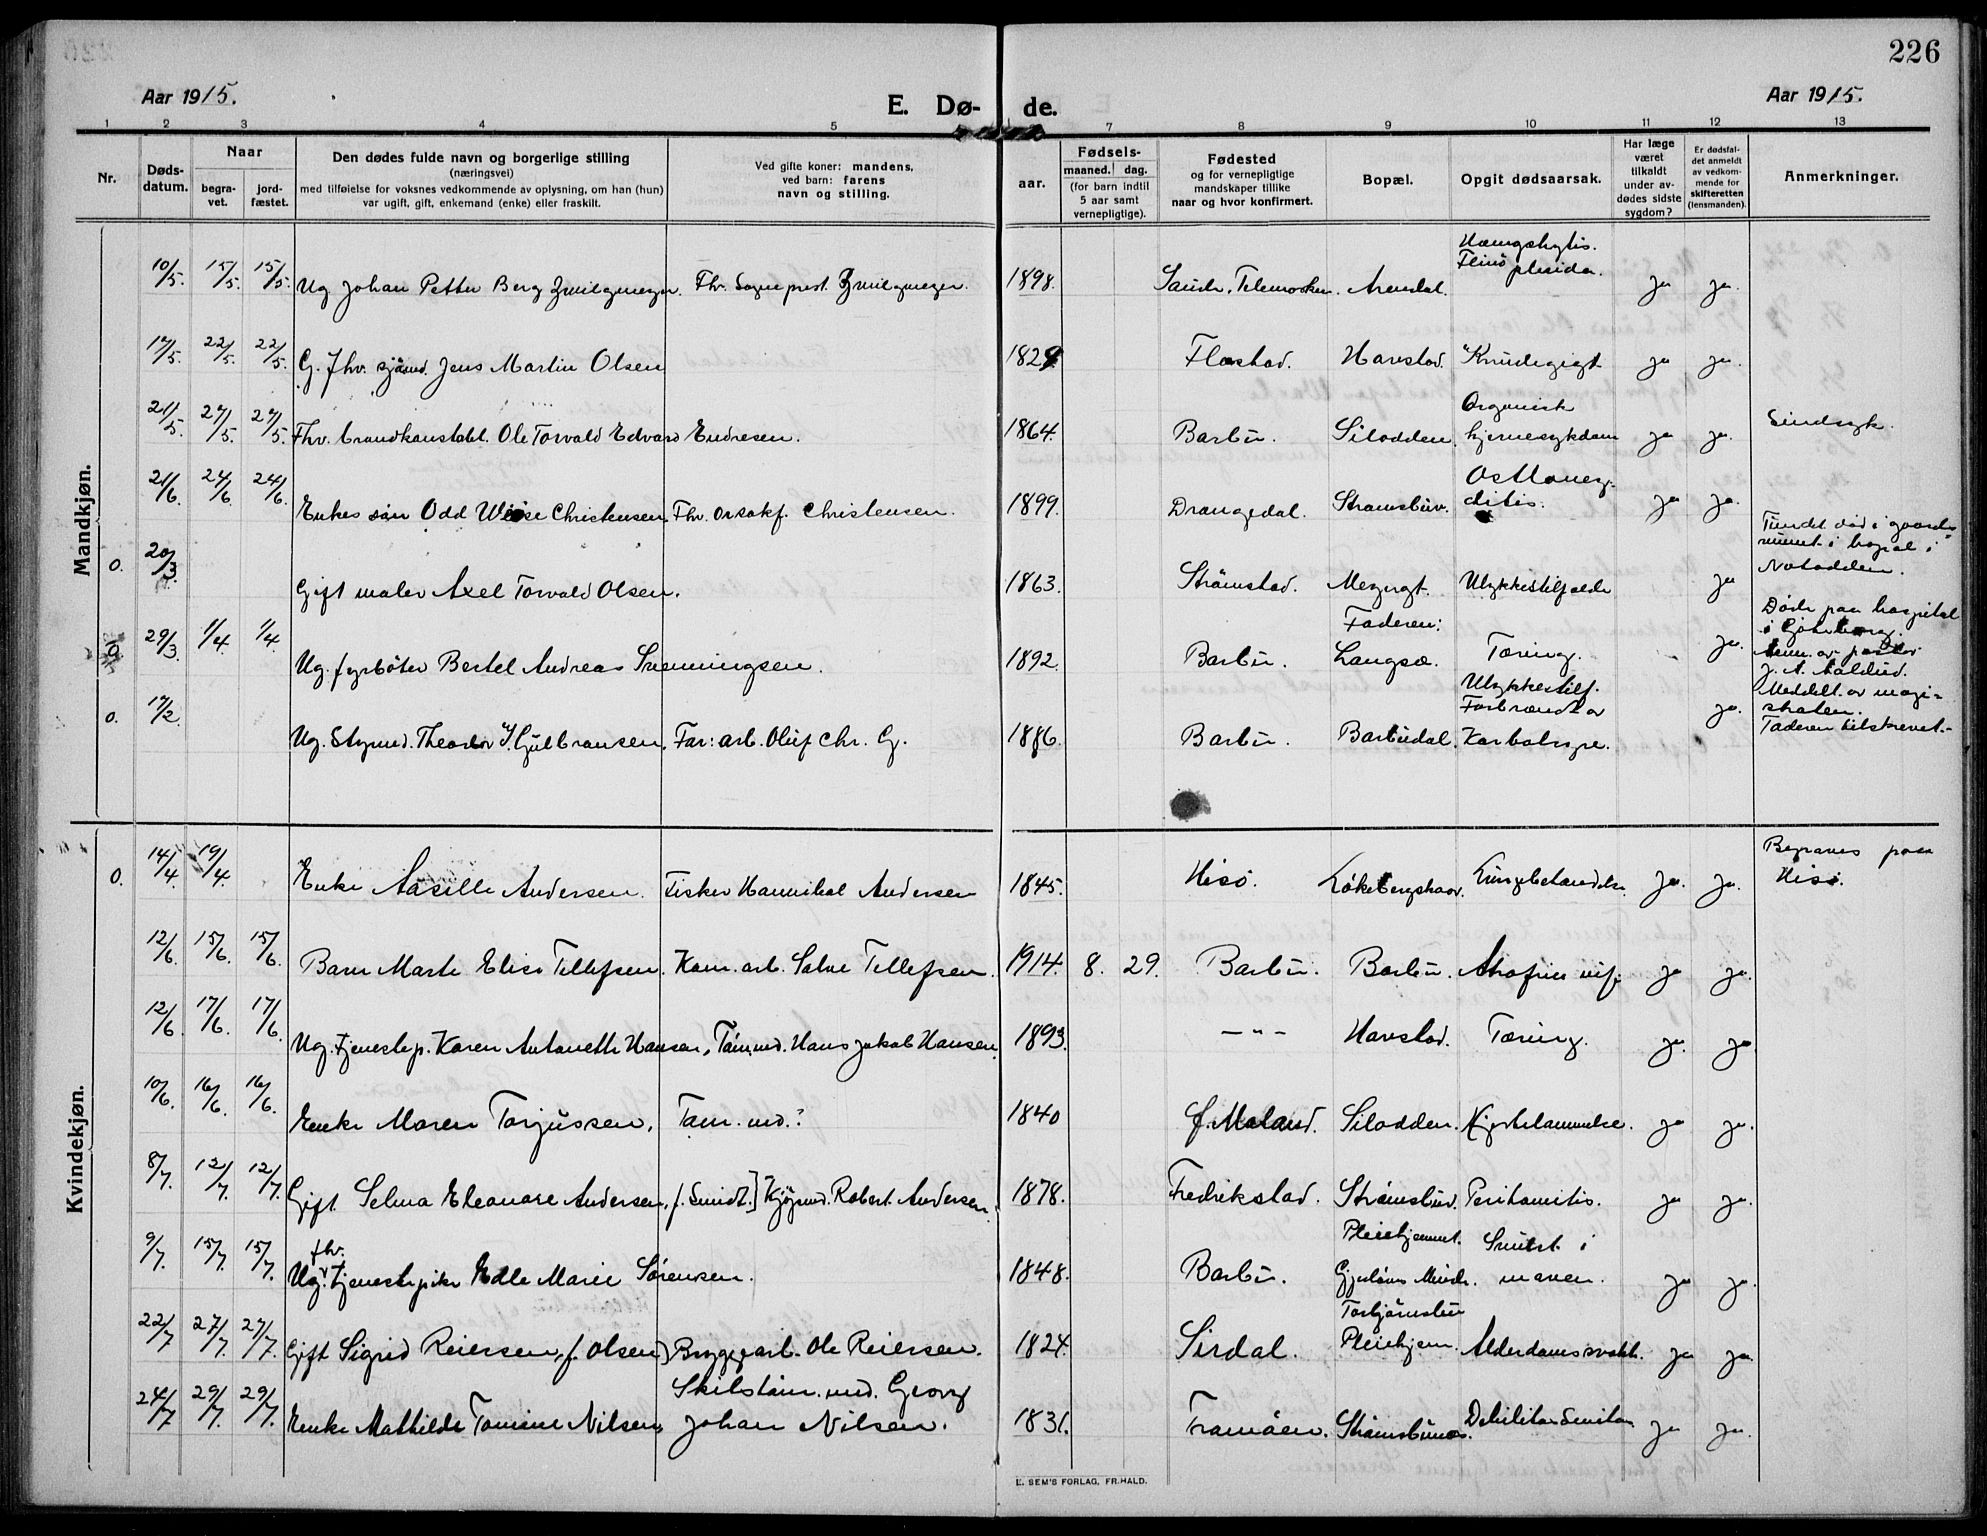 226
Aar 1915.
E. Dø- de.
Aar 1915.
1 2 3 4 5 7 8 9 10 11 12 13
Nr.
Døds-
datum.
Naar
begra-
vet.
jord-
fæstet.
Den dødes fulde navn og borgerlige stilling
(næringsvei)
med tilføielse for voksnes vedkommende av oplysning, om han (hun)
var ugift, gift, enkemand (enke) eller fraskilt.
Ved gifte koner: mandens,
ved barn: farens
navn og stilling.
aar.
Fødsels-
maaned. dag.
(for barn indtil
5 aar samt
vernepligtige).
Fødested
og for vernepligtige
mandskaper tillike
naar og hvor konfirmert.
Bopæl.
Opgit dødsaarsak.
Har læge
været
tilkaldt
under av-
dødes sidste
sygdom?
Er dødsfal-
det anmeldt
av vedkom-
mende for
skifteretten
(lensmanden).
Anmerkninger.
Mandkjøn.
10/5. 15/5. 15/5. Ug Johan Petter Berg Zwilgmeyer. Fhv. Sogneprest Zwilgmeyer. 1898. Saude, Telemarken. Arendal. ja ja.
17/5. 22/5. 22/5. G. fhv. sjømd. Jens Martin Olsen 1829 Flostad. Havstad. Knudegigt ja ja.
21/5. 27/5. 27/5. Fhv. brandkonstabl. Ole Torvald Edvard Endresen. 1864. Barbu. Silodden. Organisk
hjernesykdom ja ja. Sindsyk.
21/6. 24/6. 24/6. Enkes søn Odd Wiese Christensen. Fhv. o.r.sakf. Christensen. 1899. Drangedal. Strømsbu. ja ja.
o. 20/3. Gift maler Axel Torvald Olsen. 1863. Strømstad. Ulykkestilfælde ja
Fundet død i gaards-
rummet i bopæl i
Notodden.
29/3. 1/4. 1/4. Ug. fyrbøter Bertel Andreas Svenningsen. 1892. Barbu. Faderen:
Langsæ. Tæring. ja.
Døde paa hospital
i Gøteborg.
Anm. av pastor
o. 17/2. Ug. Styrmd. Theodor Gulbransen. Far: arb. Oluf Chr. G. 1886. Barbu. Barbudal. Ulykkestilf.
Forbrændt av
Karbolsyre. ja.
Meddelt av magi-
straten.
Faderen tilskrevet.
Kvindekjøn.
o. 14/4. 19/4. Enke Aasille Andersen. Fisker Hannibal Andersen 1845. Hisø. Lungebetændelse. ja. ja. Begraves paa
Hisø.
12/6. 15/6. 15/6. Barn Marte Elise Tellefsen. Kom. arb. Salve Tellefsen. 1914. 8. 29. Barbu. Barbu. ja ja.
12/6. 17/6. 17/6. Ug. tjenestep. Karen Antonette Hansen, Tømmd. Hans Jakob Hansen. 1893. — " — Havstad. Tæring. ja. ja.
10/6. 16/6. 16/6. Enke Maren Torjussen, Tøm. md.? 1840 Ø. Moland. Silodden. Hjertelammelse. ja ja.
8/7. 12/7. 12/7. Gift Selma Eleonore Andersen, f. Smidt.] Kjøpmd. Robert Andersen. 1878. Fredrikstad. Strømsbud. Peritonitis. ja ja.
9/7. 15/7. 15/7. Ug. fhv. tjenestepike Edle Marie Sørensen. 1848. Barbu. Pleiehjemmet. Gjerløws Minde. Smerte i
maven. ja ja.
22/7 27/7. 27/7. Gift Sigrid Reiersen, f. Olsen) Bryggearb. Ole Reiersen. 1824. Sirdal. Torbjørnsbu
Pleiehjem. Alderdomssvakh. ja ja.
24/7 29/7. 29/7. Enke Mathilde Tomine Nilsen, Skibstøm. md. Georg
Johan Nilsen. 1831. Tromøen. Strømsbunes. Debilitas Senilis ja ja.
E. SEM'S FORLAG, FR.HALD.